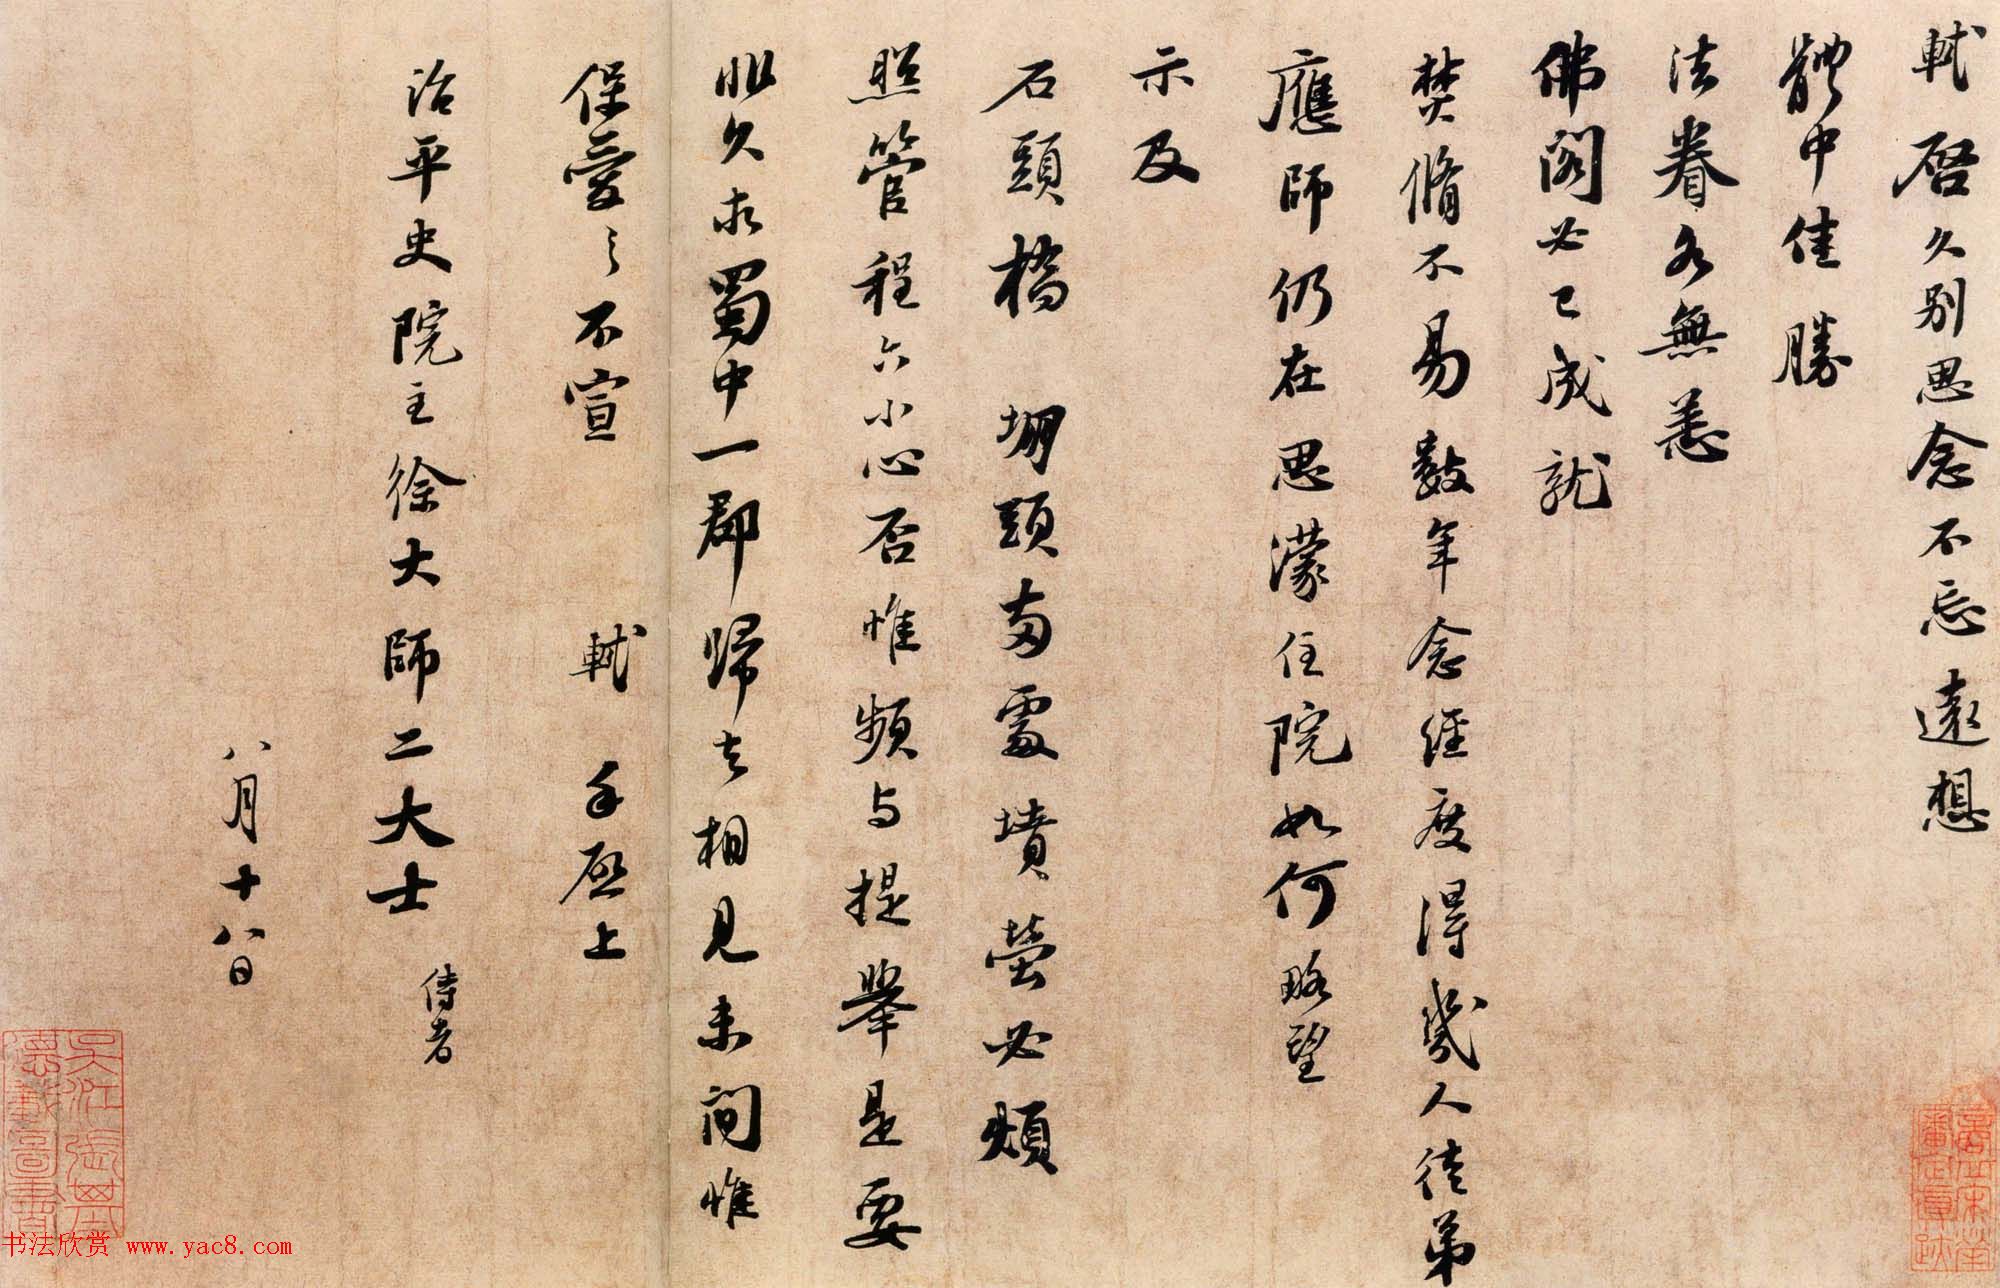 軾啓久別思念不忘遠想
體中佳勝
法眷各無恙
佛閣必已成就
焚脩不易數年念經度得幾人徒弟
應師仍在思濛住院如何略望
示及
石頭橋 堋頭兩處墳塋必煩
照管程六小心否惟頻与提舉是要
非久求蜀中一郡歸去相見未間惟
保愛之不宣 軾 手啓上
治平史院主徐大師二大士 侍者
八月十八日
书法欣赏 www.yac8.com